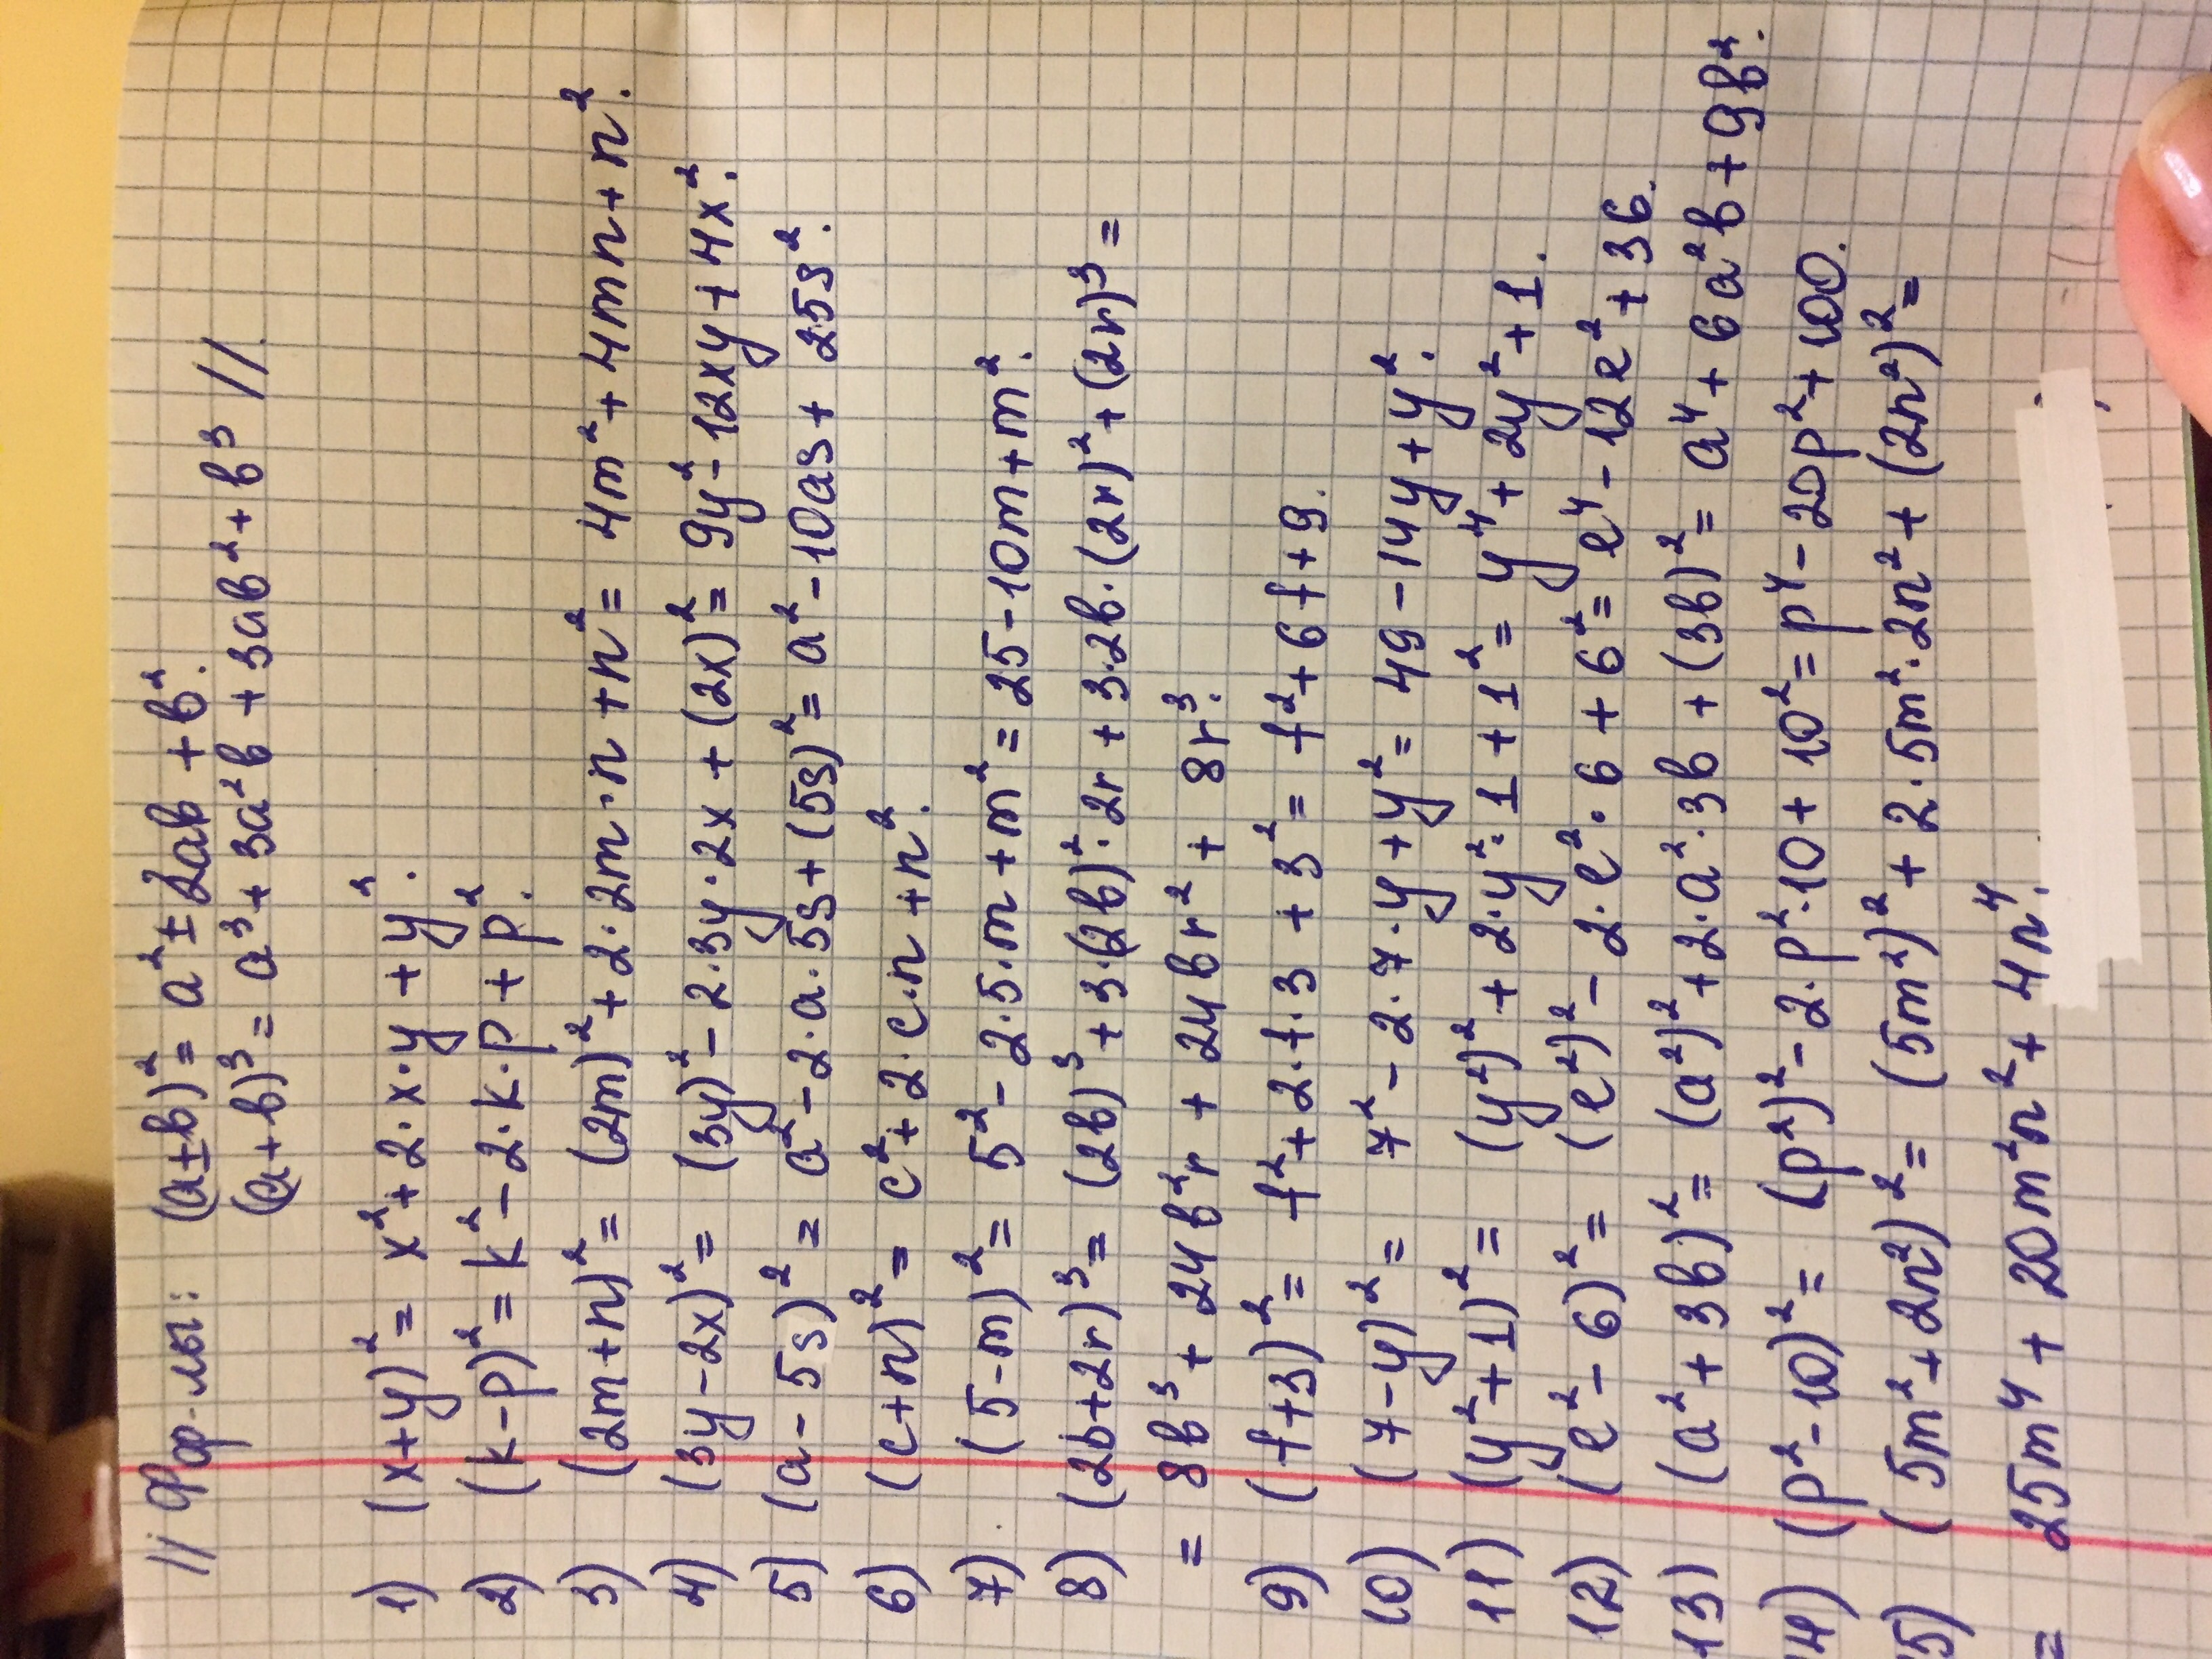 // Фор-лы: (a±b)² = a² ± 2ab + b².
(a+b)³ = a³ + 3a²b + 3ab² + b³ //.
1) (x+y)² = x² + 2·x·y + y².
2) (k-p)² = k² - 2·k·p + p².
3) (2m+n)² = (2m)² + 2·2m·n + n² = 4m² + 4mn + n².
4) (3y-2x)² = (3y)² - 2·3y·2x + (2x)² = 9y² - 12xy + 4x².
5) (a-5s)² = a² - 2·a·5s + (5s)² = a² - 10as + 25s².
6) (c+n)² = c² + 2·c·n + n².
7) (5-m)² = 5² - 2·5·m + m² = 25 - 10m + m².
8) (2b+2r)³ = (2b)³ + 3·(2b)²·2r + 3·2b·(2r)² + (2r)³ =
= 8b³ + 24b²r + 24br² + 8r³.
9) (f+3)² = f² + 2·f·3 + 3² = f² + 6f + 9.
10) (7-y)² = 7² - 2·7·y + y² = 49 - 14y + y².
11) (y²+1)² = (y²)² + 2·y²·1 + 1² = y⁴ + 2y² + 1.
12) (e²-6)² = (e²)² - 2·e²·6 + 6² = e⁴ - 12e² + 36.
13) (a²+3b)² = (a²)² + 2·a²·3b + (3b)² = a⁴ + 6a²b + 9b².
14) (p²-10)² = (p²)² - 2·p²·10 + 10² = p⁴ - 20p² + 100.
15) (5m²+2n²)² = (5m²)² + 2·5m²·2n² + (2n²)² =
= 25m⁴ + 20m²n² + 4n⁴.